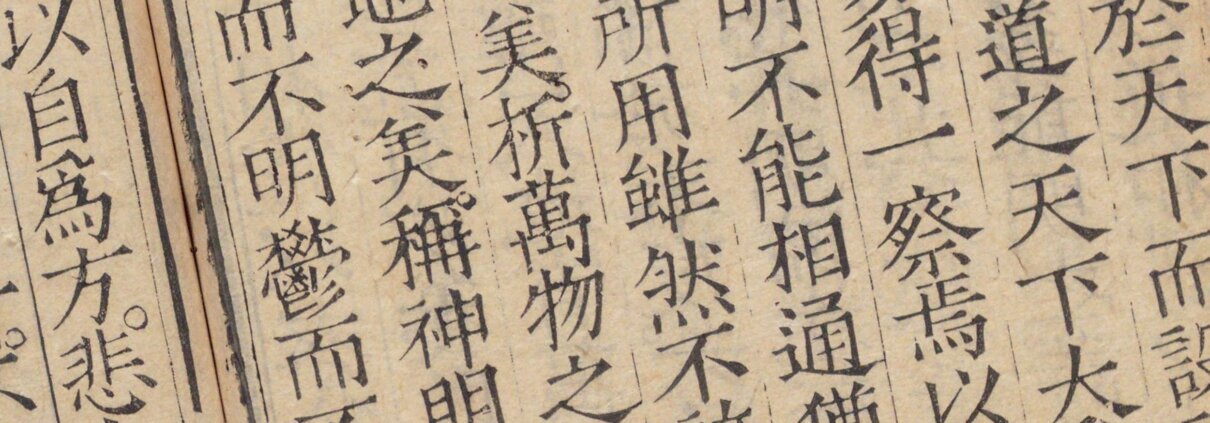 於天下而設
道之天下大
得一察焉以
明不能相通猶
所用雖然不
美。析萬物之
地之美。稱神明
而不明鬱而不
以自爲方。悲